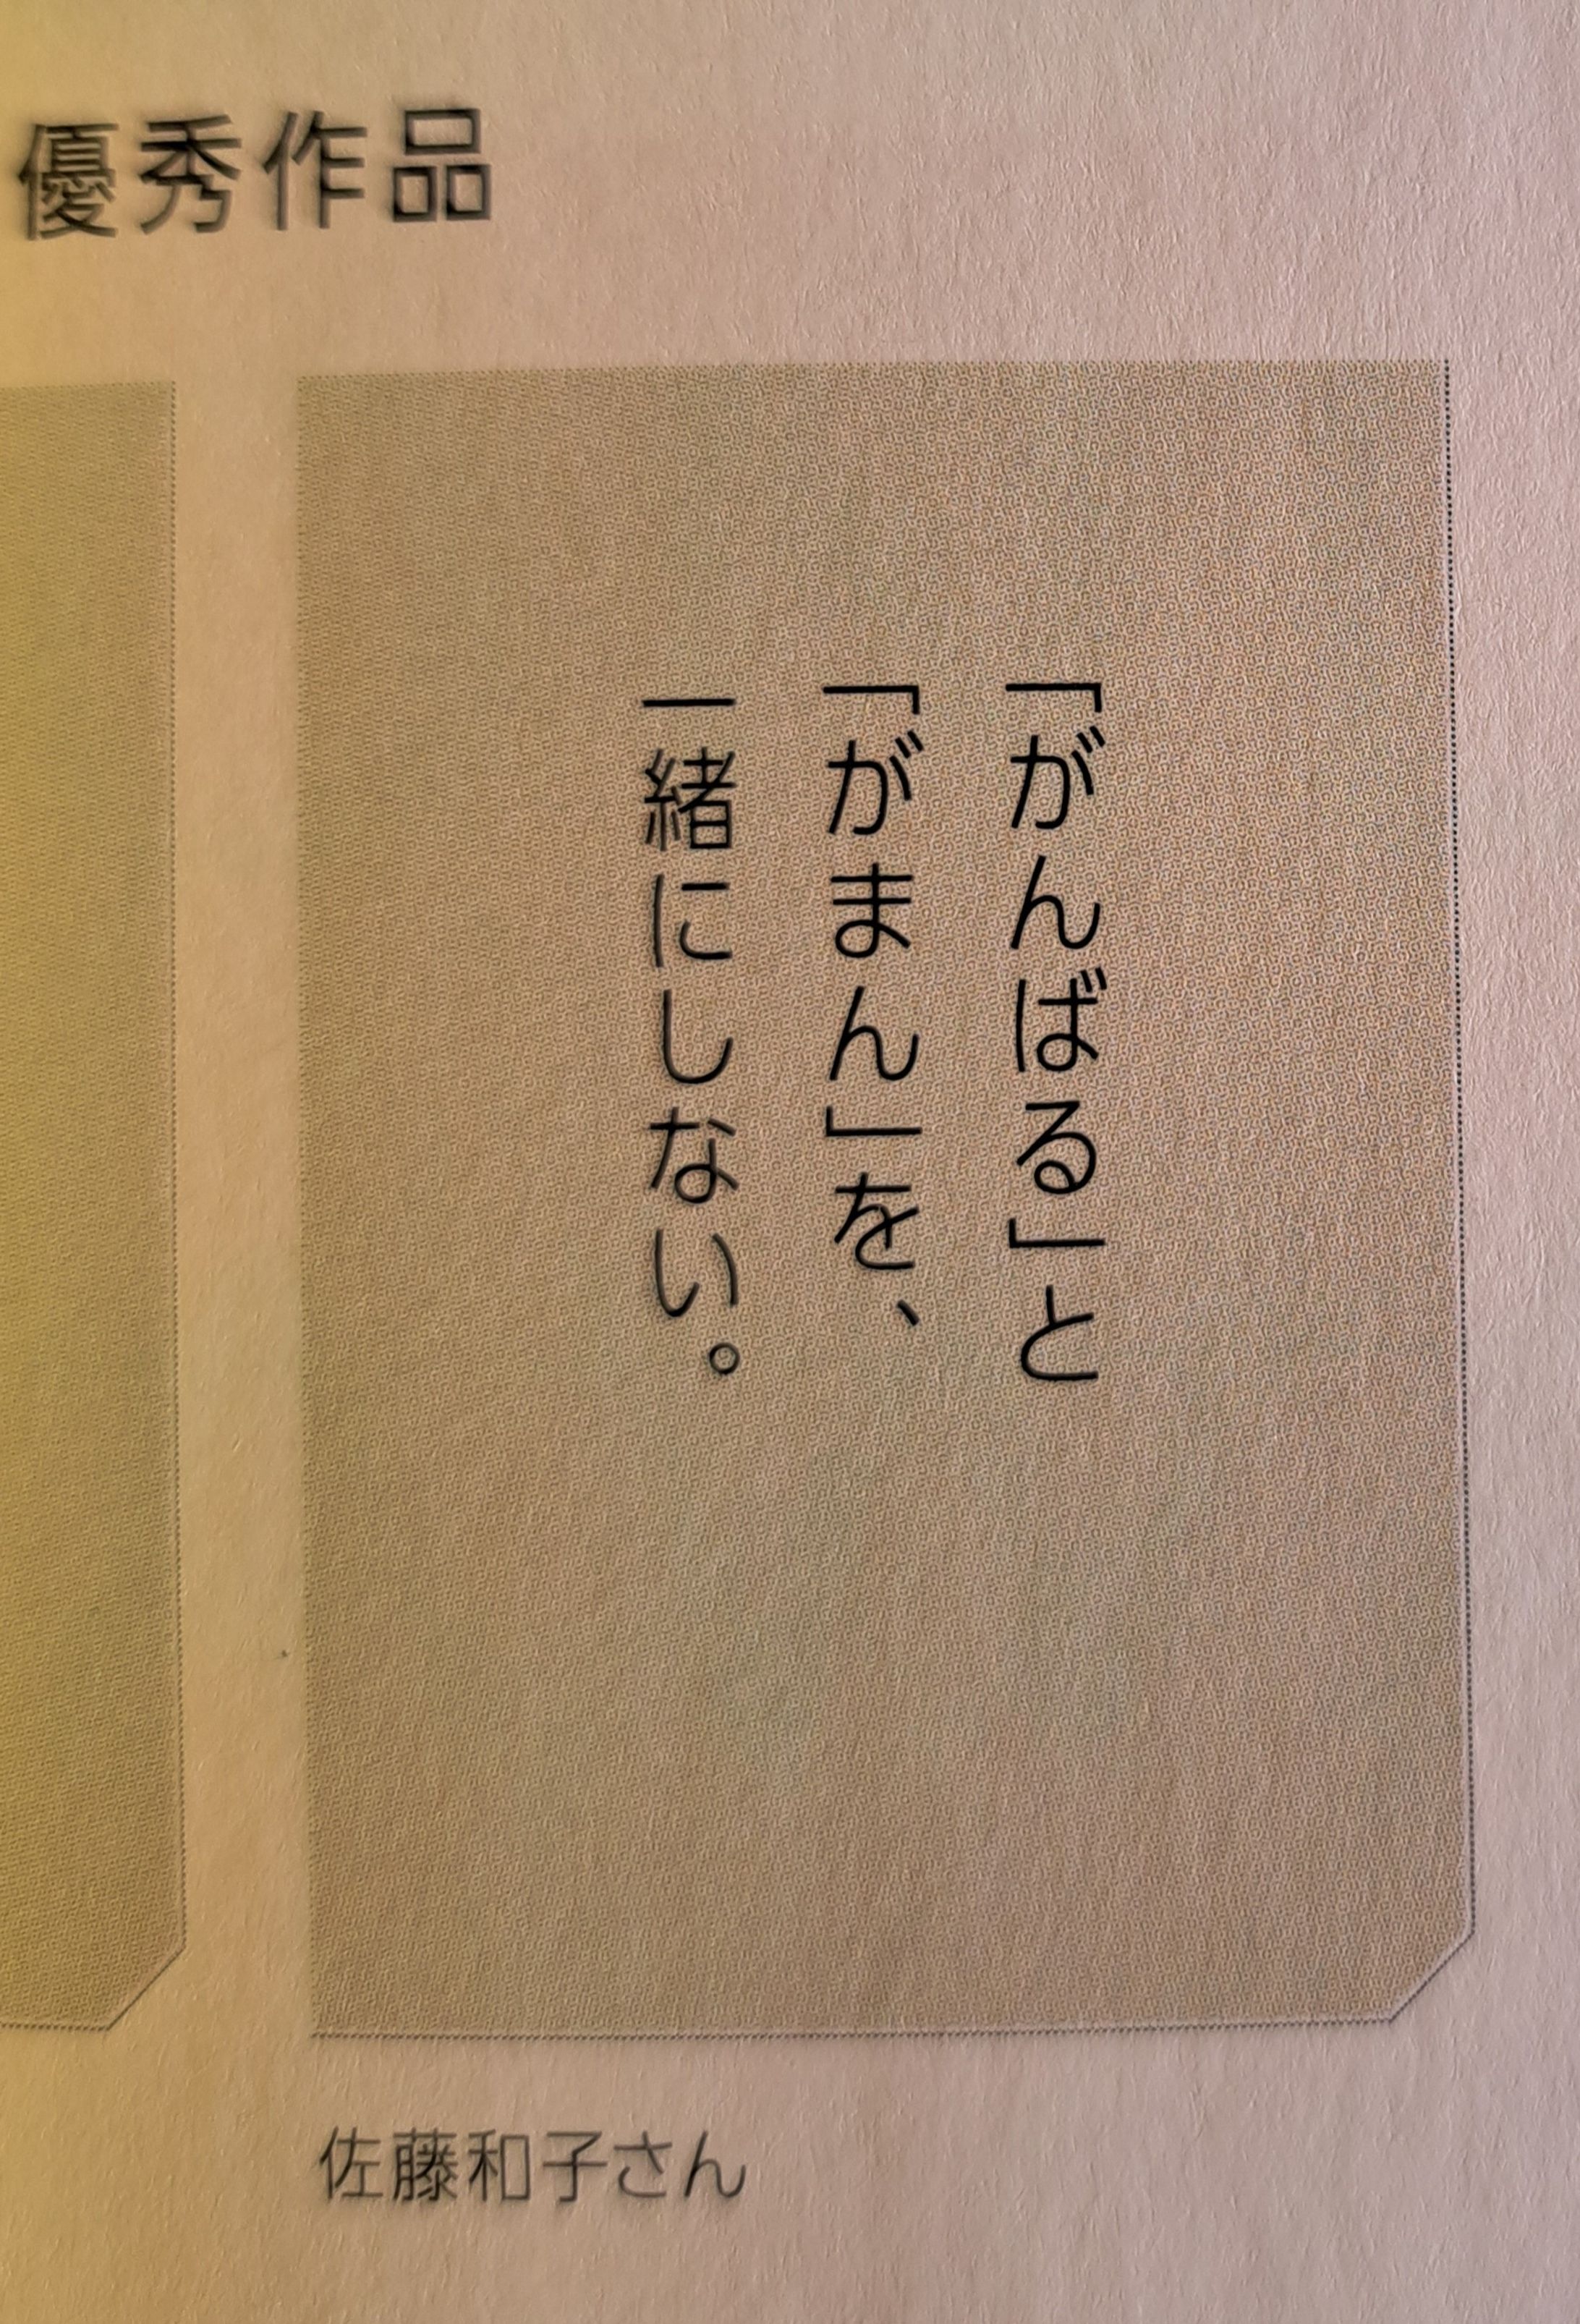 優秀作品
「がんばる」と
「がまん」を、
一緒にしない。
佐藤和子さん